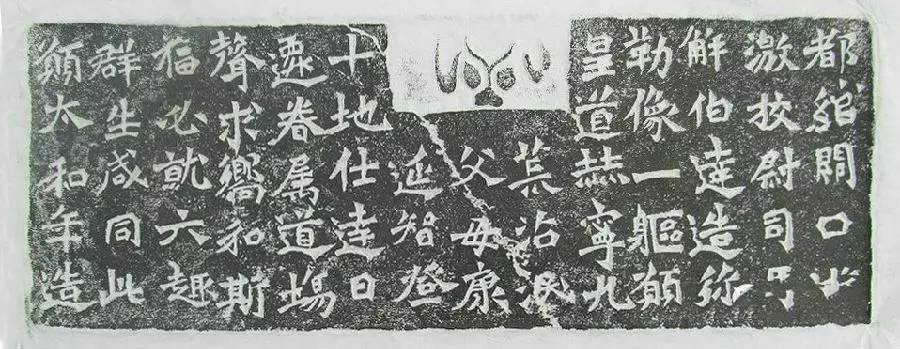 都綰関口
激校尉司
解伯達造弥
勒像一軀願
皇道赫寧九
荒沾泯
父母康
延智登
十地仕達日
遷眷属道場
聲求響和斯
福必就六趣
群生咸同此
願太和年造